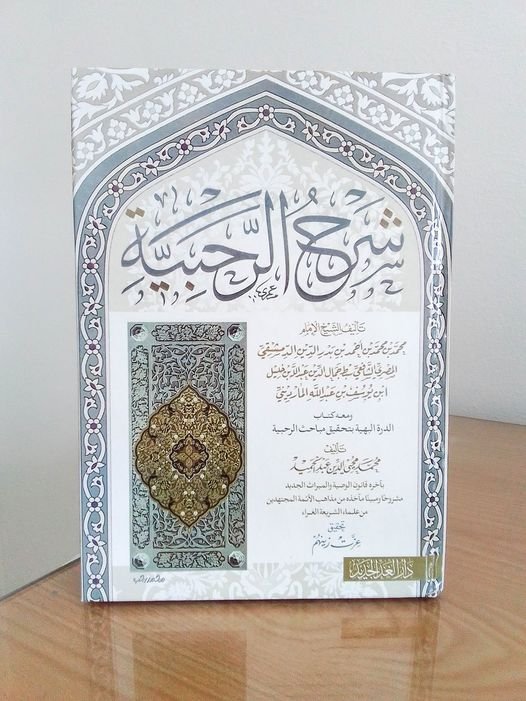 شرح الرحبية
تأليف الشيخ الإمام
محمد بن محمد بن أحمد بن بدر الدين الدمشقي
المصري الشافعي سبط جمال الدين عبد الله بن خليل
ابن يوسف بن عبد الله المارديني
ومعه كتاب
الدرة البهية بتحقيق مباحث الرحبية
تأليف
محمد محيي الدين عبد الحميد
بآخره قانون الوصية والميراث الجديد
مشروحا ومبينا مأخذه من مذاهب الأئمة المجتهدين
من علماء الشريعة الغراء
تحقيق
عزت زينهم
دار الغد الجديد